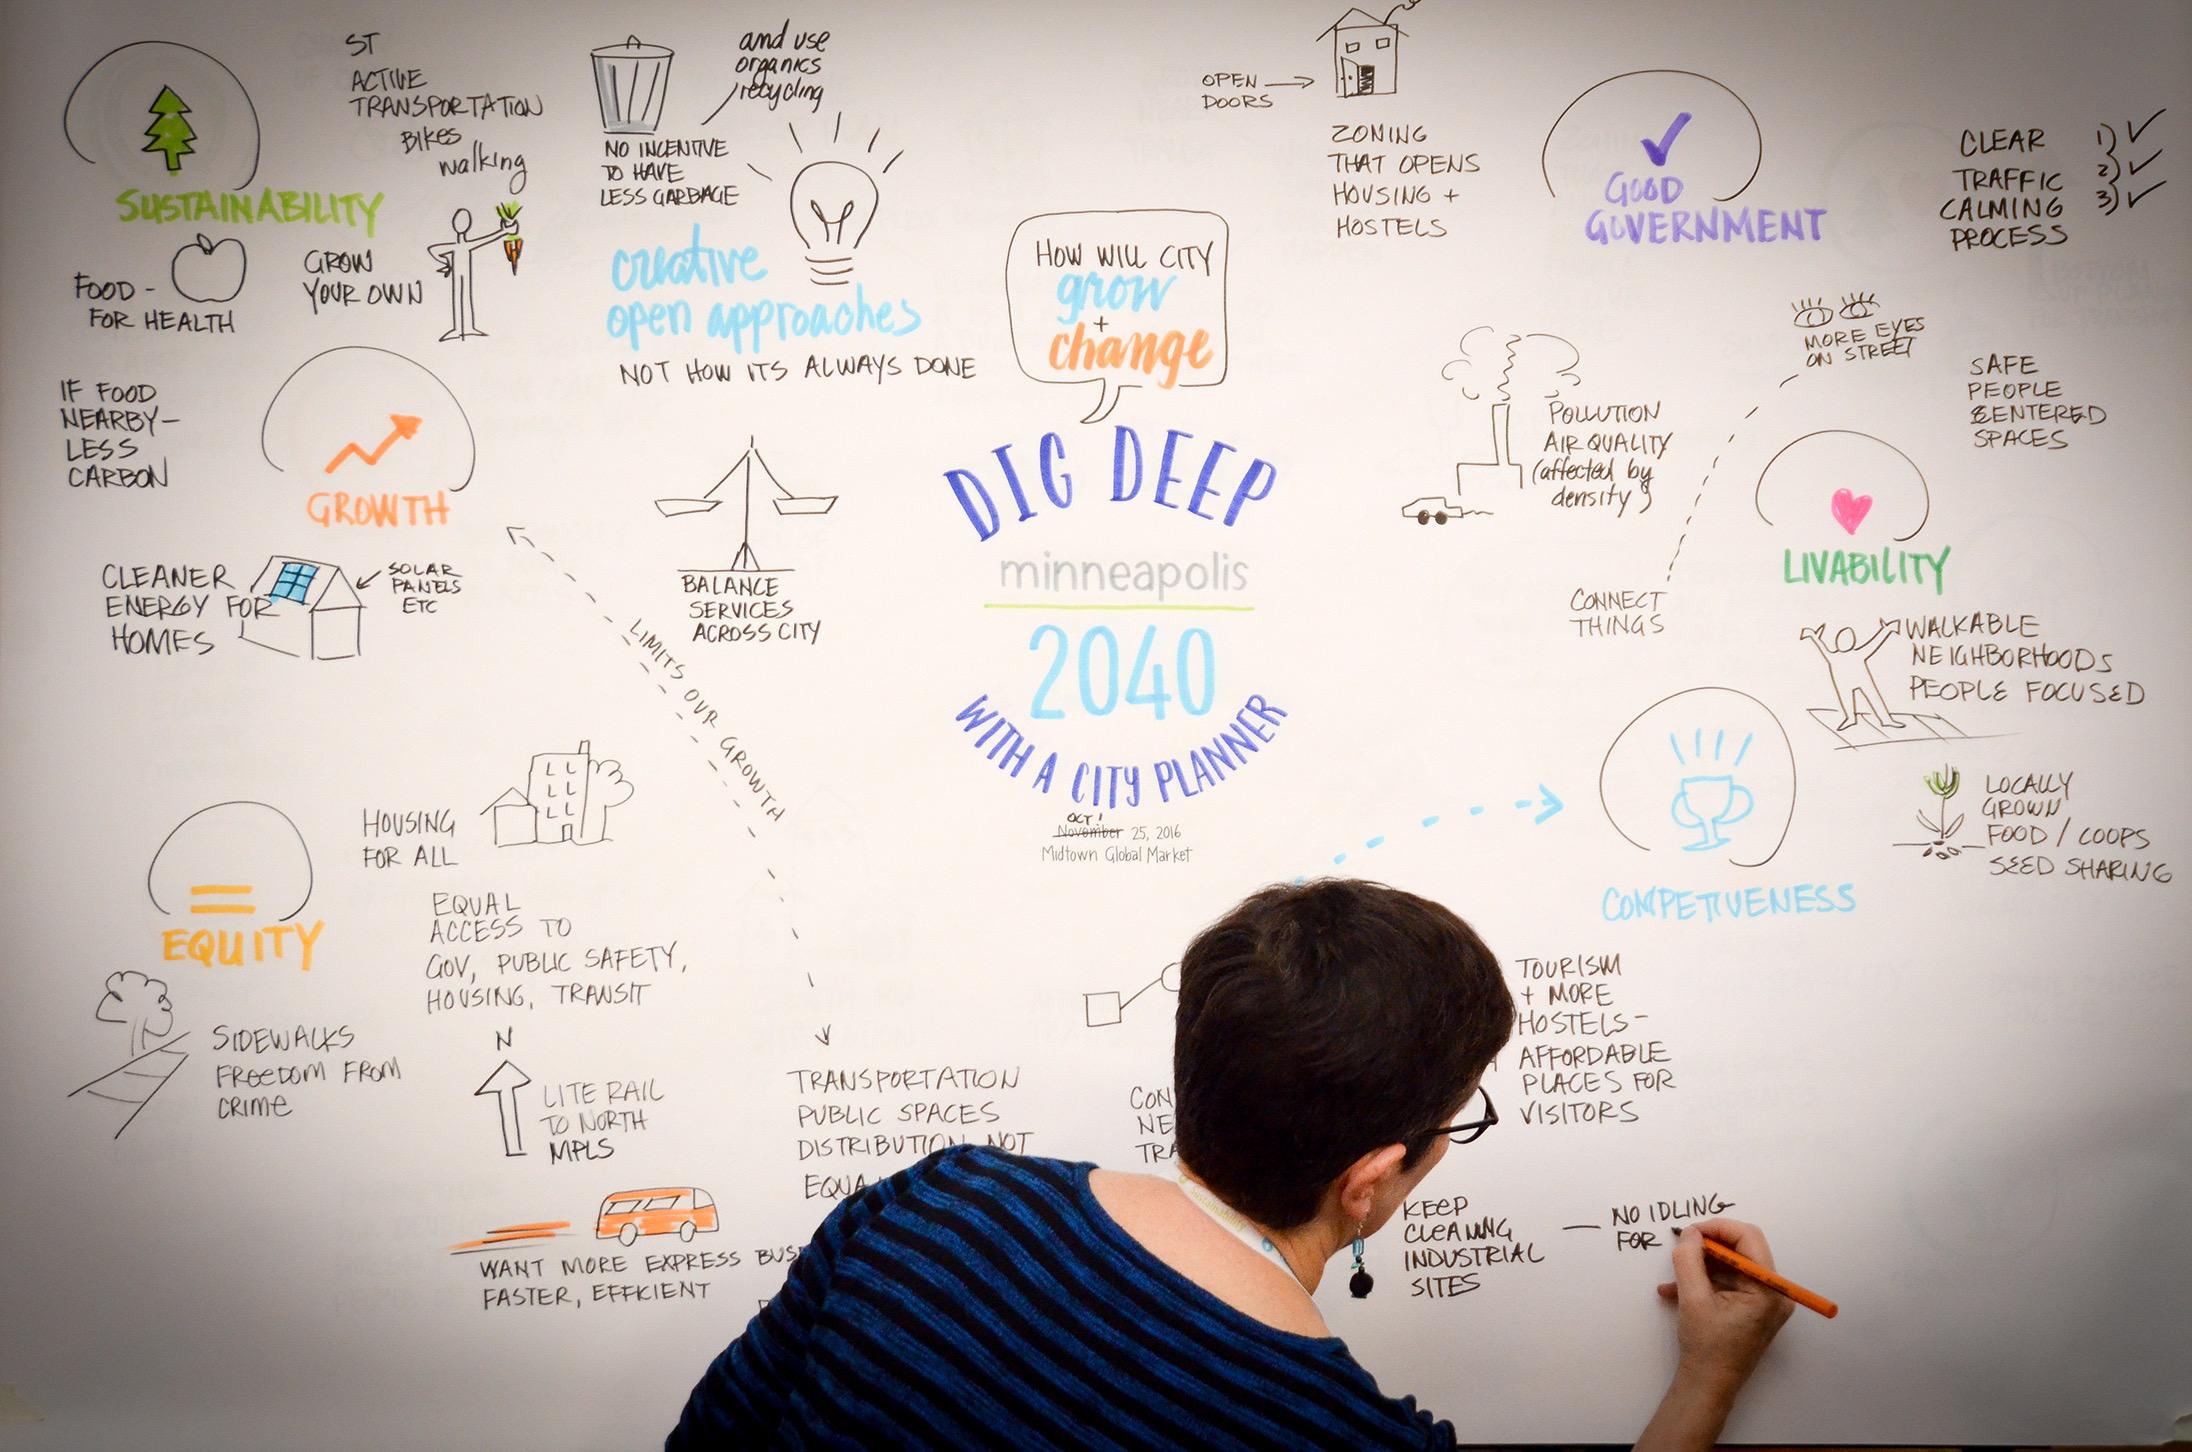 ST
ACTIVE
TRANSPORTATION
BIKES
walking
SUSTAINABILITY
FOOD -
FOR HEALTH
GROW
YOUR OWN
IF FOOD
NEARBY-
LESS
CARBON
GROWTH
CLEANER
ENERGY FOR
HOMES
SOLAR
PANELS
ETC
and use
organics
recycling
NO INCENTIVE
TO HAVE
LESS GARBAGE
creative
open approaches
NOT HOW ITS ALWAYS DONE
BALANCE
SERVICES
ACROSS CITY
LIMITS OUR GROWTH
HOW WILL CITY
grow
+
change
DIG DEEP
minneapolis
2040
WITH A CITY PLANNER
OCT!
November 25, 2016
Midtown Global Market
OPEN
DOORS
ZONING
THAT OPENS
HOUSING +
HOSTELS
GOOD
GOVERNMENT
CLEAR
TRAFFIC
CALMING
PROCESS
1) ✓
2) ✓
3) ✓
MORE EYES
ON STREET
SAFE
PEOPLE
CENTERED
SPACES
POLLUTION
AIR QUALITY
(affected by
density)
CONNECT
THINGS
LIVABILITY
WALKABLE
NEIGHBORHOODS
PEOPLE FOCUSED
LOCALLY
GROWN
FOOD / COOPS
SEED SHARING
COMPETIVENESS
TOURISM
+ MORE
HOSTELS-
AFFORDABLE
PLACES FOR
VISITORS
HOUSING
FOR ALL
EQUITY
EQUAL
ACCESS TO
GOV, PUBLIC SAFETY,
HOUSING, TRANSIT
SIDEWALKS
FREEDOM FROM
CRIME
N
LITE RAIL
TO NORTH
MPLS
TRANSPORTATION
PUBLIC SPACES
DISTRIBUTION NOT
EQUA
CON
NE
TRA
WANT MORE EXPRESS BUS
FASTER, EFFICIENT
KEEP
CLEANING
INDUSTRIAL
SITES
— NO IDLING
FOR
Sustainability